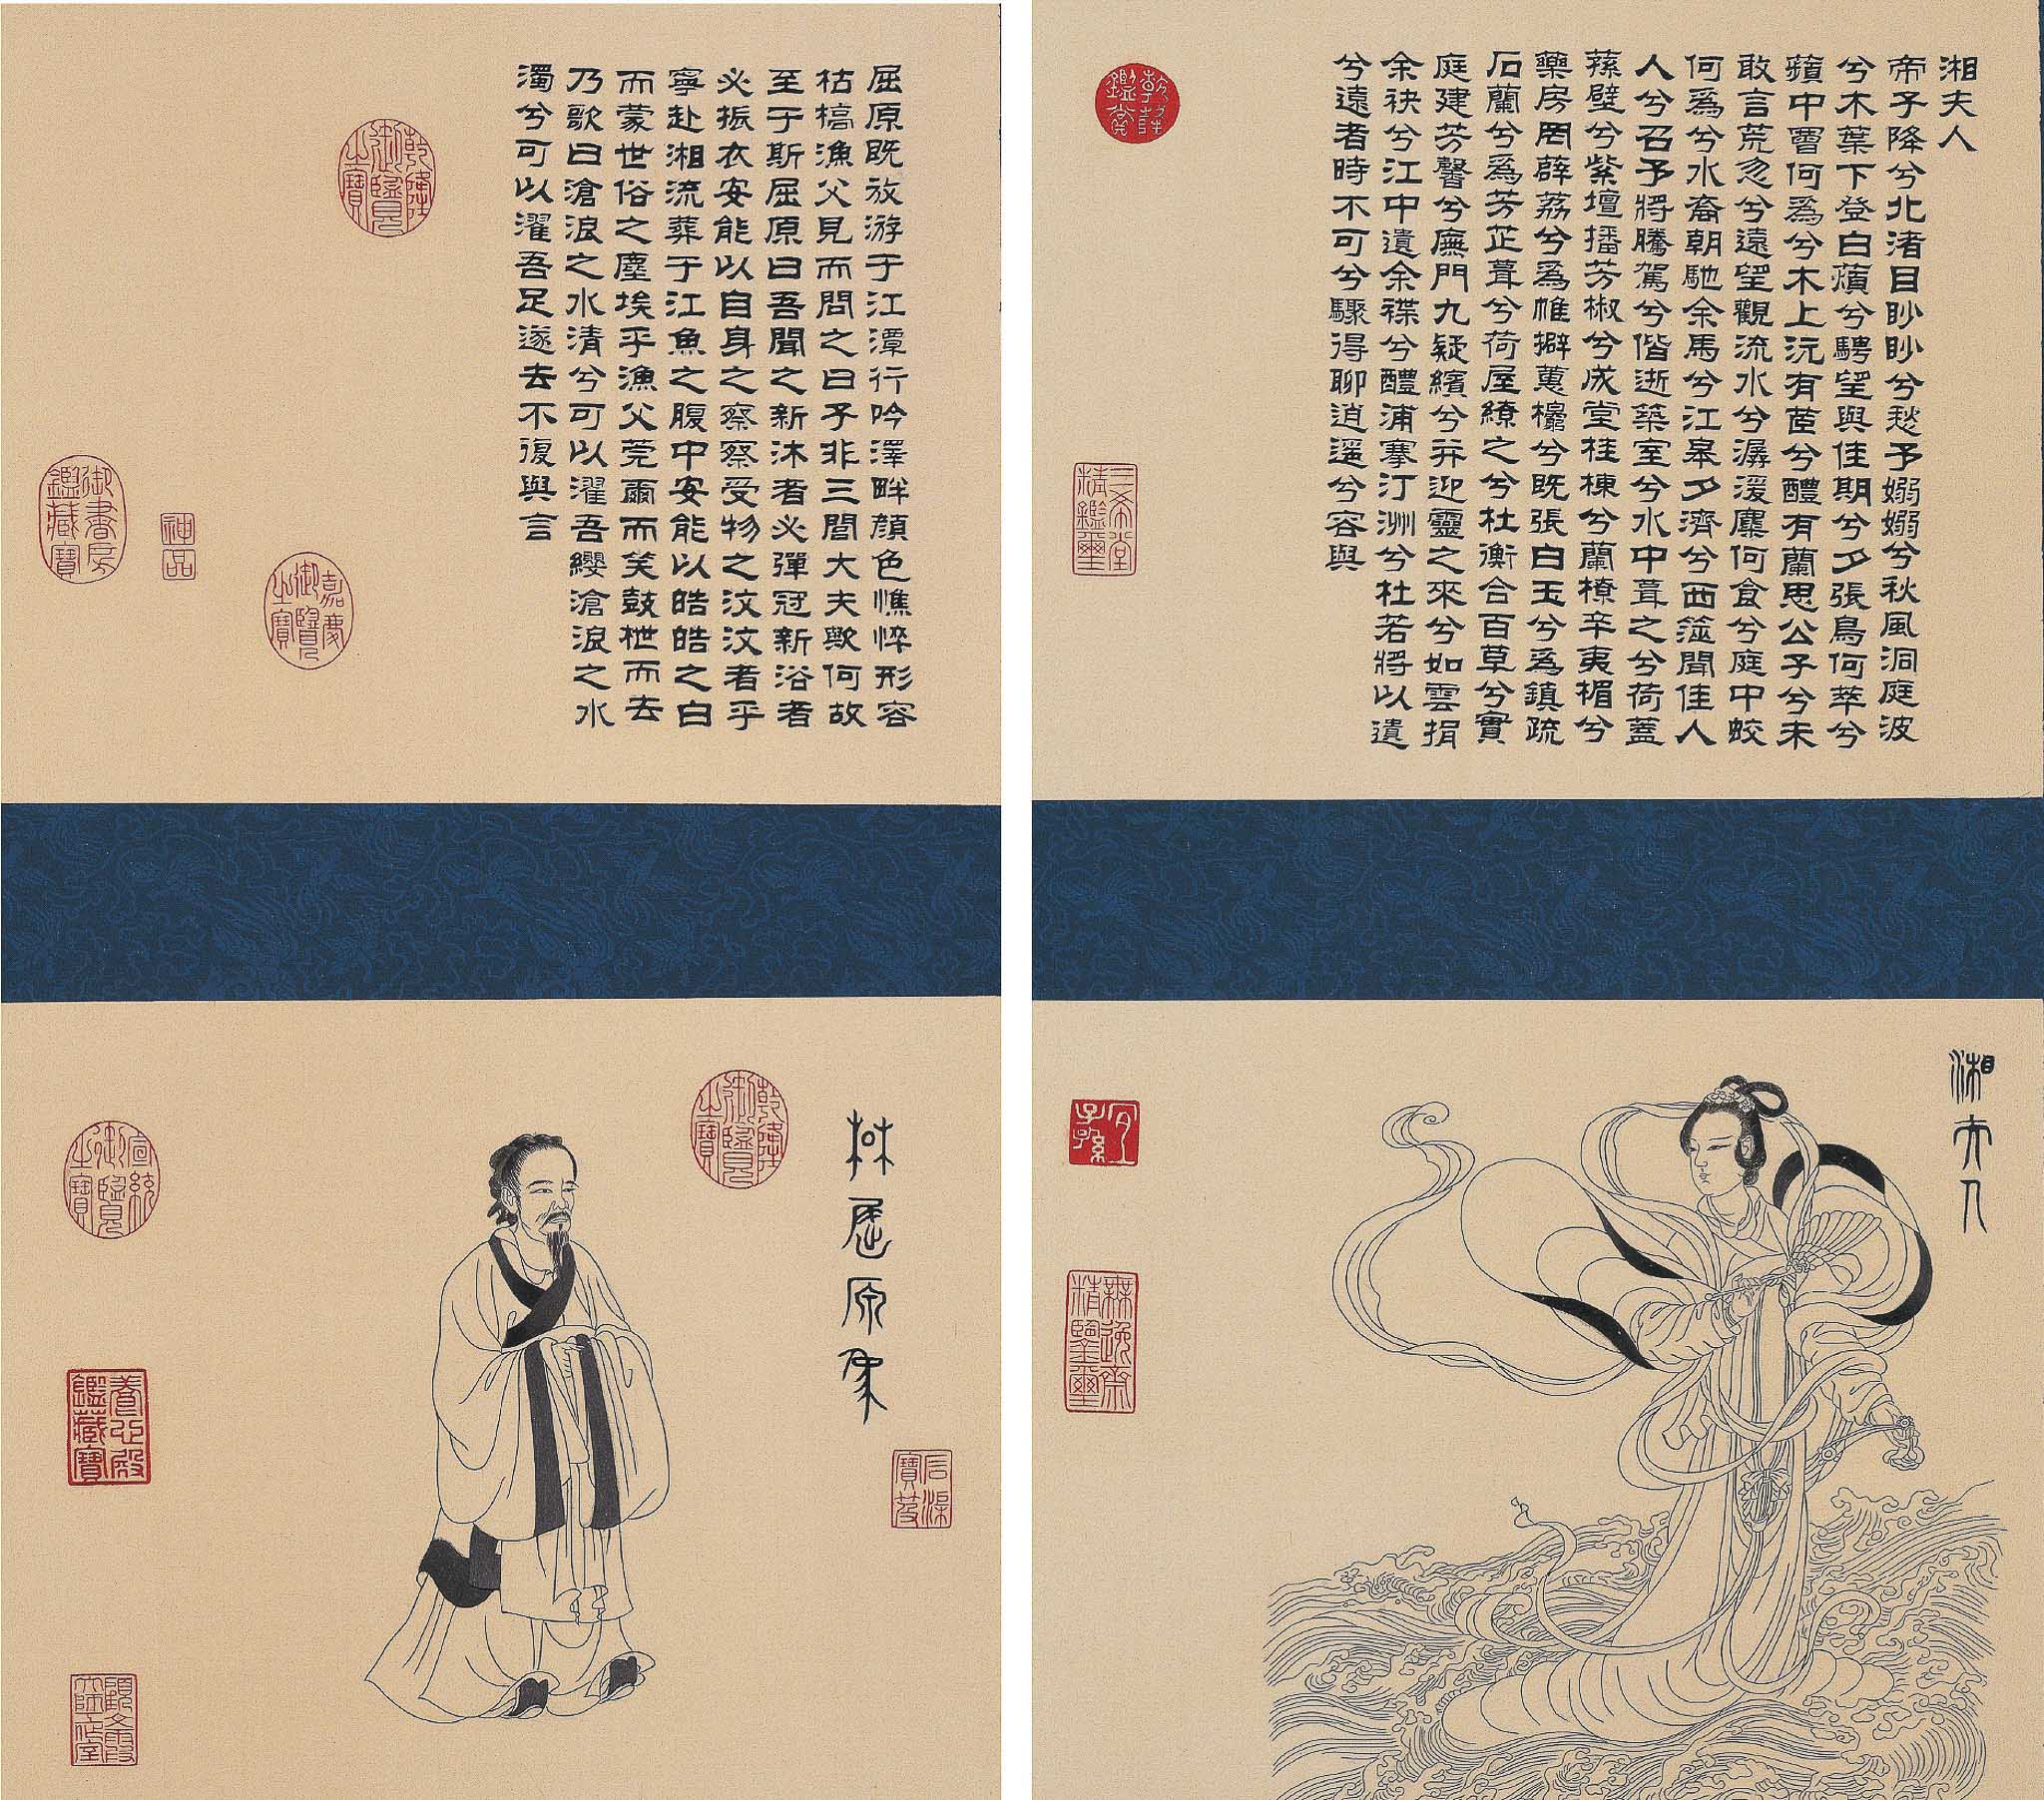 湘夫人
帝子降兮北渚目眇眇兮愁予嫋嫋兮秋風洞庭波
兮木葉下登白薠兮騁望與佳期兮夕張鳥何萃兮
蘋中罾何爲兮木上沅有茝兮醴有蘭思公子兮未
敢言荒忽兮遠望觀流水兮潺湲麋何食兮庭中蛟
何爲兮水裔朝馳余馬兮江皋夕濟兮西澨聞佳人
人兮召予將騰駕兮偕逝築室兮水中葺之兮荷蓋
蓀壁兮紫壇播芳椒兮成堂桂棟兮蘭橑辛夷楣兮
藥房罔薜荔兮爲帷擗蕙櫋兮既張白玉兮爲鎮疏
石蘭兮爲芳芷葺兮荷屋繚之兮杜衡合百草兮實
庭建芳馨兮廡門九疑繽兮并迎靈之來兮如雲捐
余袂兮江中遺余褋兮醴浦搴汀洲兮杜若將以遺
兮遠者時不可兮驟得聊逍遙兮容與
乾隆鑑賞
三希堂精鑑璽
屈原既放游于江潭行吟澤畔顏色憔悴形容
枯槁漁父見而問之曰子非三閭大夫歟何故
至于斯屈原曰吾聞之新沐者必彈冠新浴者
必振衣安能以自身之察察受物之汶汶者乎
寧赴湘流葬于江魚之腹中安能以皓皓之白
而蒙世俗之塵埃乎漁父莞爾而笑鼓枻而去
乃歌曰滄浪之水清兮可以濯吾纓滄浪之水
濁兮可以濯吾足遂去不復與言
乾隆御覽之寶
嘉慶御覽之寶
神品
御書房鑑藏寶
湘夫人
宜子孫
無逸齋精鑒璽
楚屈原像
乾隆御覽之寶
宣統御覽之寶
養心殿鑑藏寶